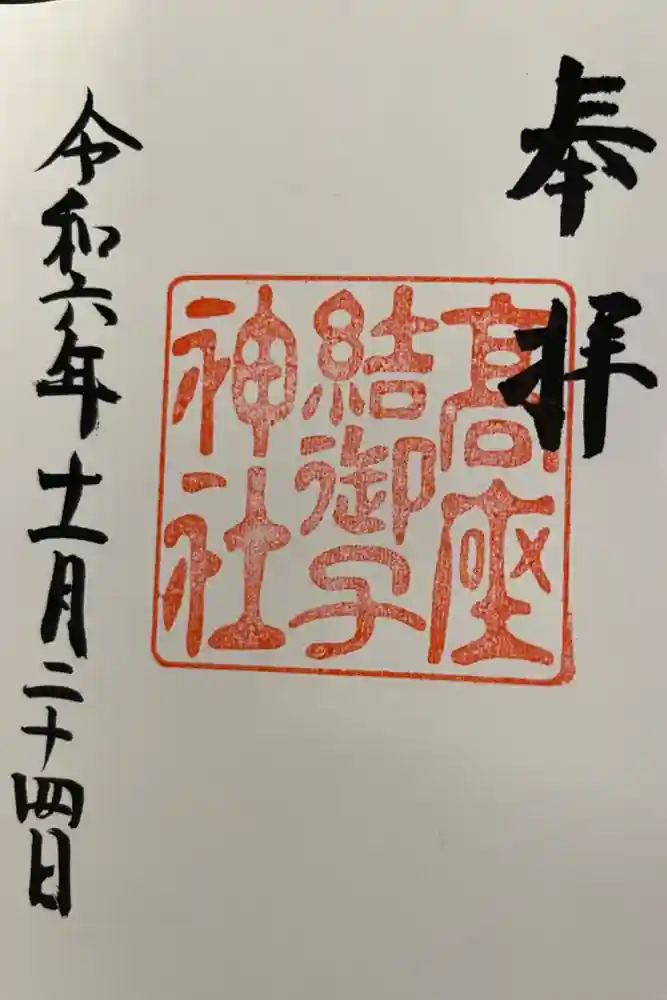 奉拝
髙座
結御子
神社
令和六年十一月二十四日